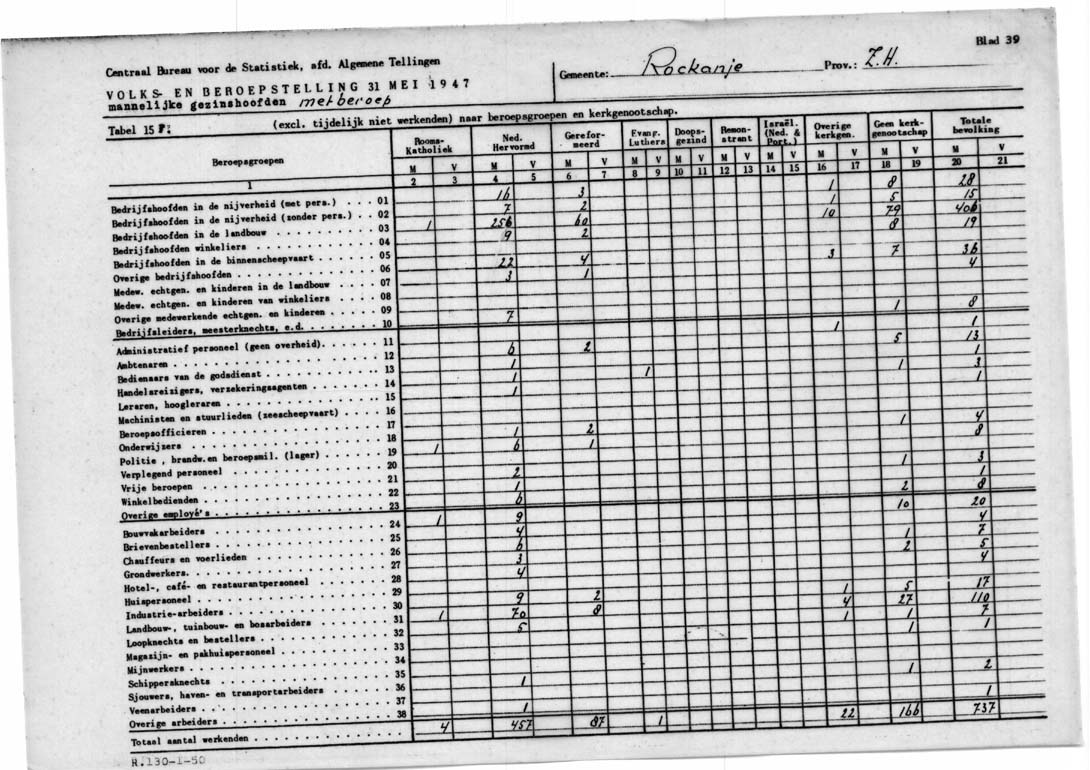 Blad 39
Centraal Bureau voor de Statistiek, afd. Algemene Tellingen
Gemeente: Rockanje Prov.: Z.H.
VOLKS- EN BEROEPSTELLING 31 MEI 1947
mannelijke gezinshoofden met beroep
Tabel 15 F: (excl. tijdelijk niet werkenden) naar beroepsgroepen en kerkgenootschap.
Beroepsgroepen Rooms-Katholiek Ned. Hervormd Gereformeerd Evang. Luthers Doopsgezind Remonstrant Israël. (Ned. & Port.) Overige kerkgen. Geen kerkgenootschap Totale bevolking
M V M V M V M V M V M V M V M V M V M V
1 2 3 4 5 6 7 8 9 10 11 12 13 14 15 16 17 18 19 20 21
Bedrijfshoofden in de nijverheid (met pers.) . . . 01 16 3 1 8 28
Bedrijfshoofden in de nijverheid (zonder pers.) . . 02 7 2 1 5 15
Bedrijfshoofden in de landbouw . . . 03 1 256 60 10 79 406
Bedrijfshoofden winkeliers . . . 04 9 2 8 19
Bedrijfshoofden in de binnenscheepvaart . . . 05
Overige bedrijfshoofden . . . 06 22 4 3 7 36
Medew. echtgen. en kinderen in de landbouw . . . 07 3 1 4
Medew. echtgen. en kinderen van winkeliers . . . 08
Overige medewerkende echtgen. en kinderen . . . 09
Bedrijfsleiders, meesterknechts, e.d. . . . 10 7 1 8
Administratief personeel (geen overheid). . . . 11 1 1
Ambtenaren . . . 12 6 2 5 13
Bedienaars van de godsdienst . . . 13 1 1
Handelsreizigers, verzekeringsagenten . . . 14 1 1 1 3
Leraren, hoogleraren . . . 15 1 1
Machinisten en stuurlieden (zeescheepvaart) . . . 16
Beroepsofficieren . . . 17
Onderwijzers . . . 18 1 2 1 4
Politie , brandw.en beroepsmil. (lager) . . . 19 1 6 1 8
Verplegend personeel . . . 20
Vrije beroepen . . . 21 2 1 3
Winkelbedienden . . . 22 1 1
Overige employé's . . . 23 6 2 8
Bouwvakarbeiders . . . 24 1 9 10 20
Brievenbestellers . . . 25 4 4
Chauffeurs en voerlieden . . . 26 6 1 7
Grondwerkers. . . . 27 3 2 5
Hotel-, café- en restaurantpersoneel . . . 28 4 4
Huispersoneel . . . 29
Industrie-arbeiders . . . 30 9 2 1 5 17
Landbouw-, tuinbouw- en bosarbeiders . . . 31 1 70 8 4 27 110
Loopknechts en bestellers . . . 32 5 1 1 7
Magazijn- en pakhuispersoneel . . . 33 1 1
Mijnwerkers . . . 34
Schippersknechts . . . 35
Sjouwers, haven- en transportarbeiders . . . 36 1 1 2
Veenarbeiders . . . 37
Overige arbeiders . . . 38 1 1
Totaal aantal werkenden . . . 4 457 87 1 22 166 737
R.130-I-50